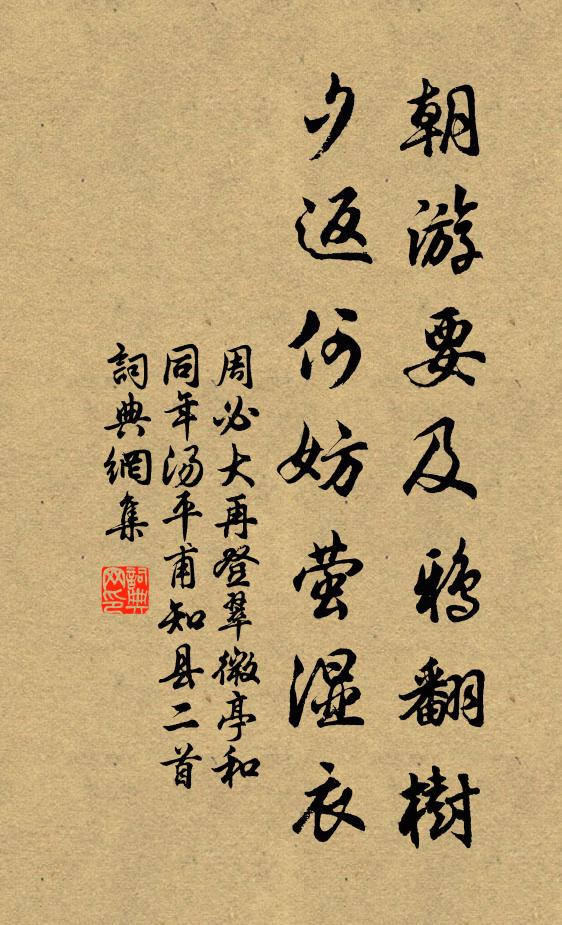 朝游要及鸦翻樹
夕返何妨萤濕衣
周必大再登翠微亭和
同年汤平甫知县二首
詞典網集
詞典
网印